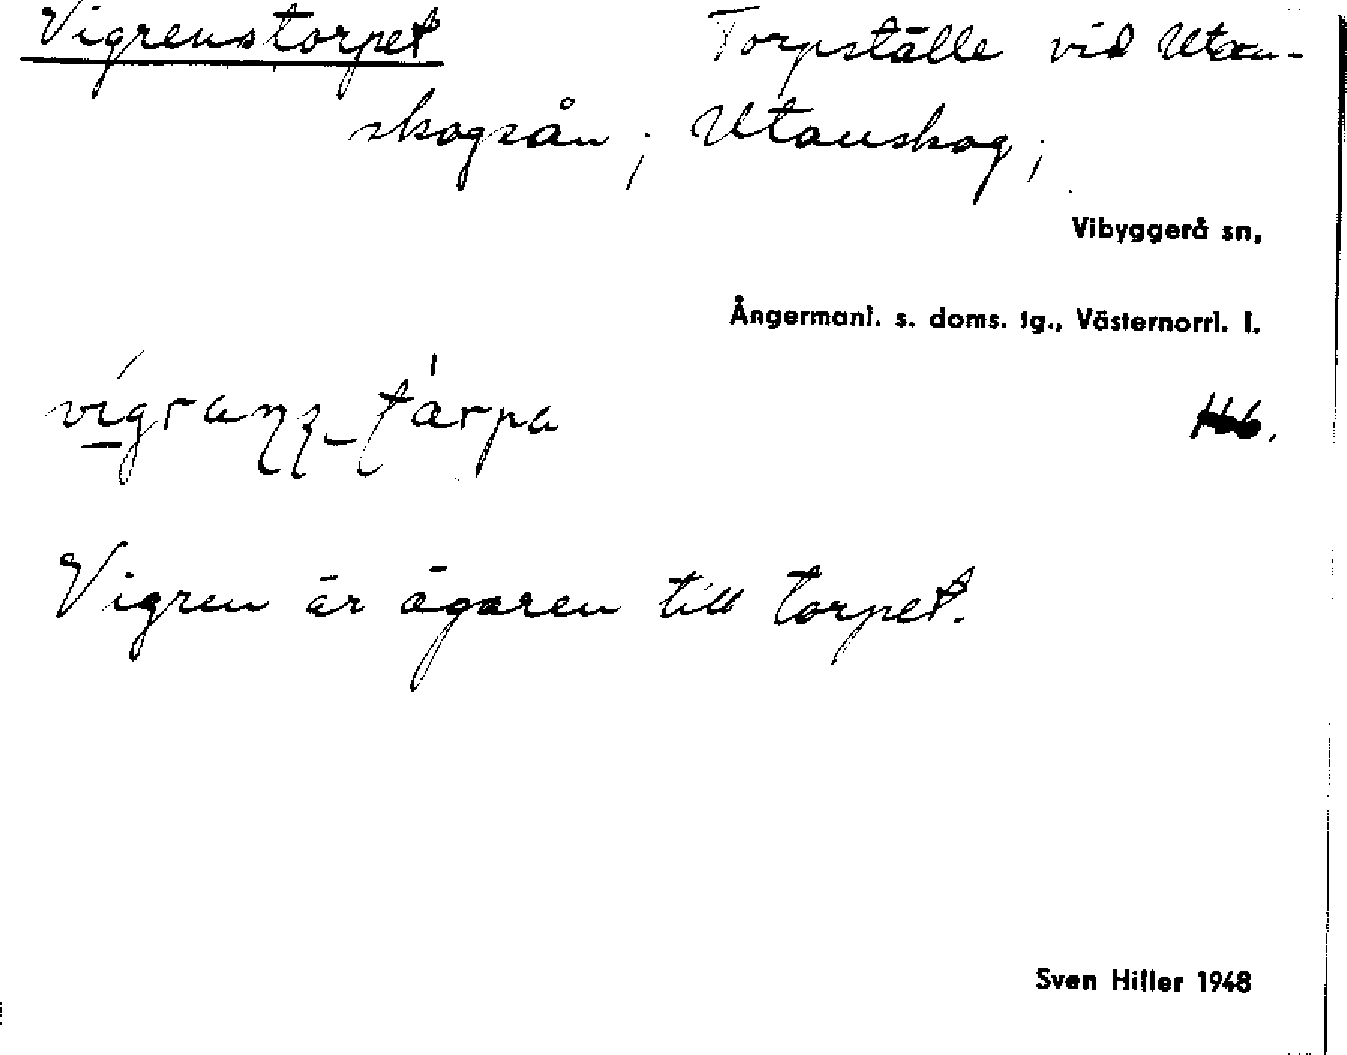 Vigrenstorpet Torpställe vid Utan-
skogsån; Utanskog;
Vibyggerå sn,
Ångermanl. s. doms. tg., Västernorrl. l.
Vigren är ägaren till torpet.
Sven Hiller 1948